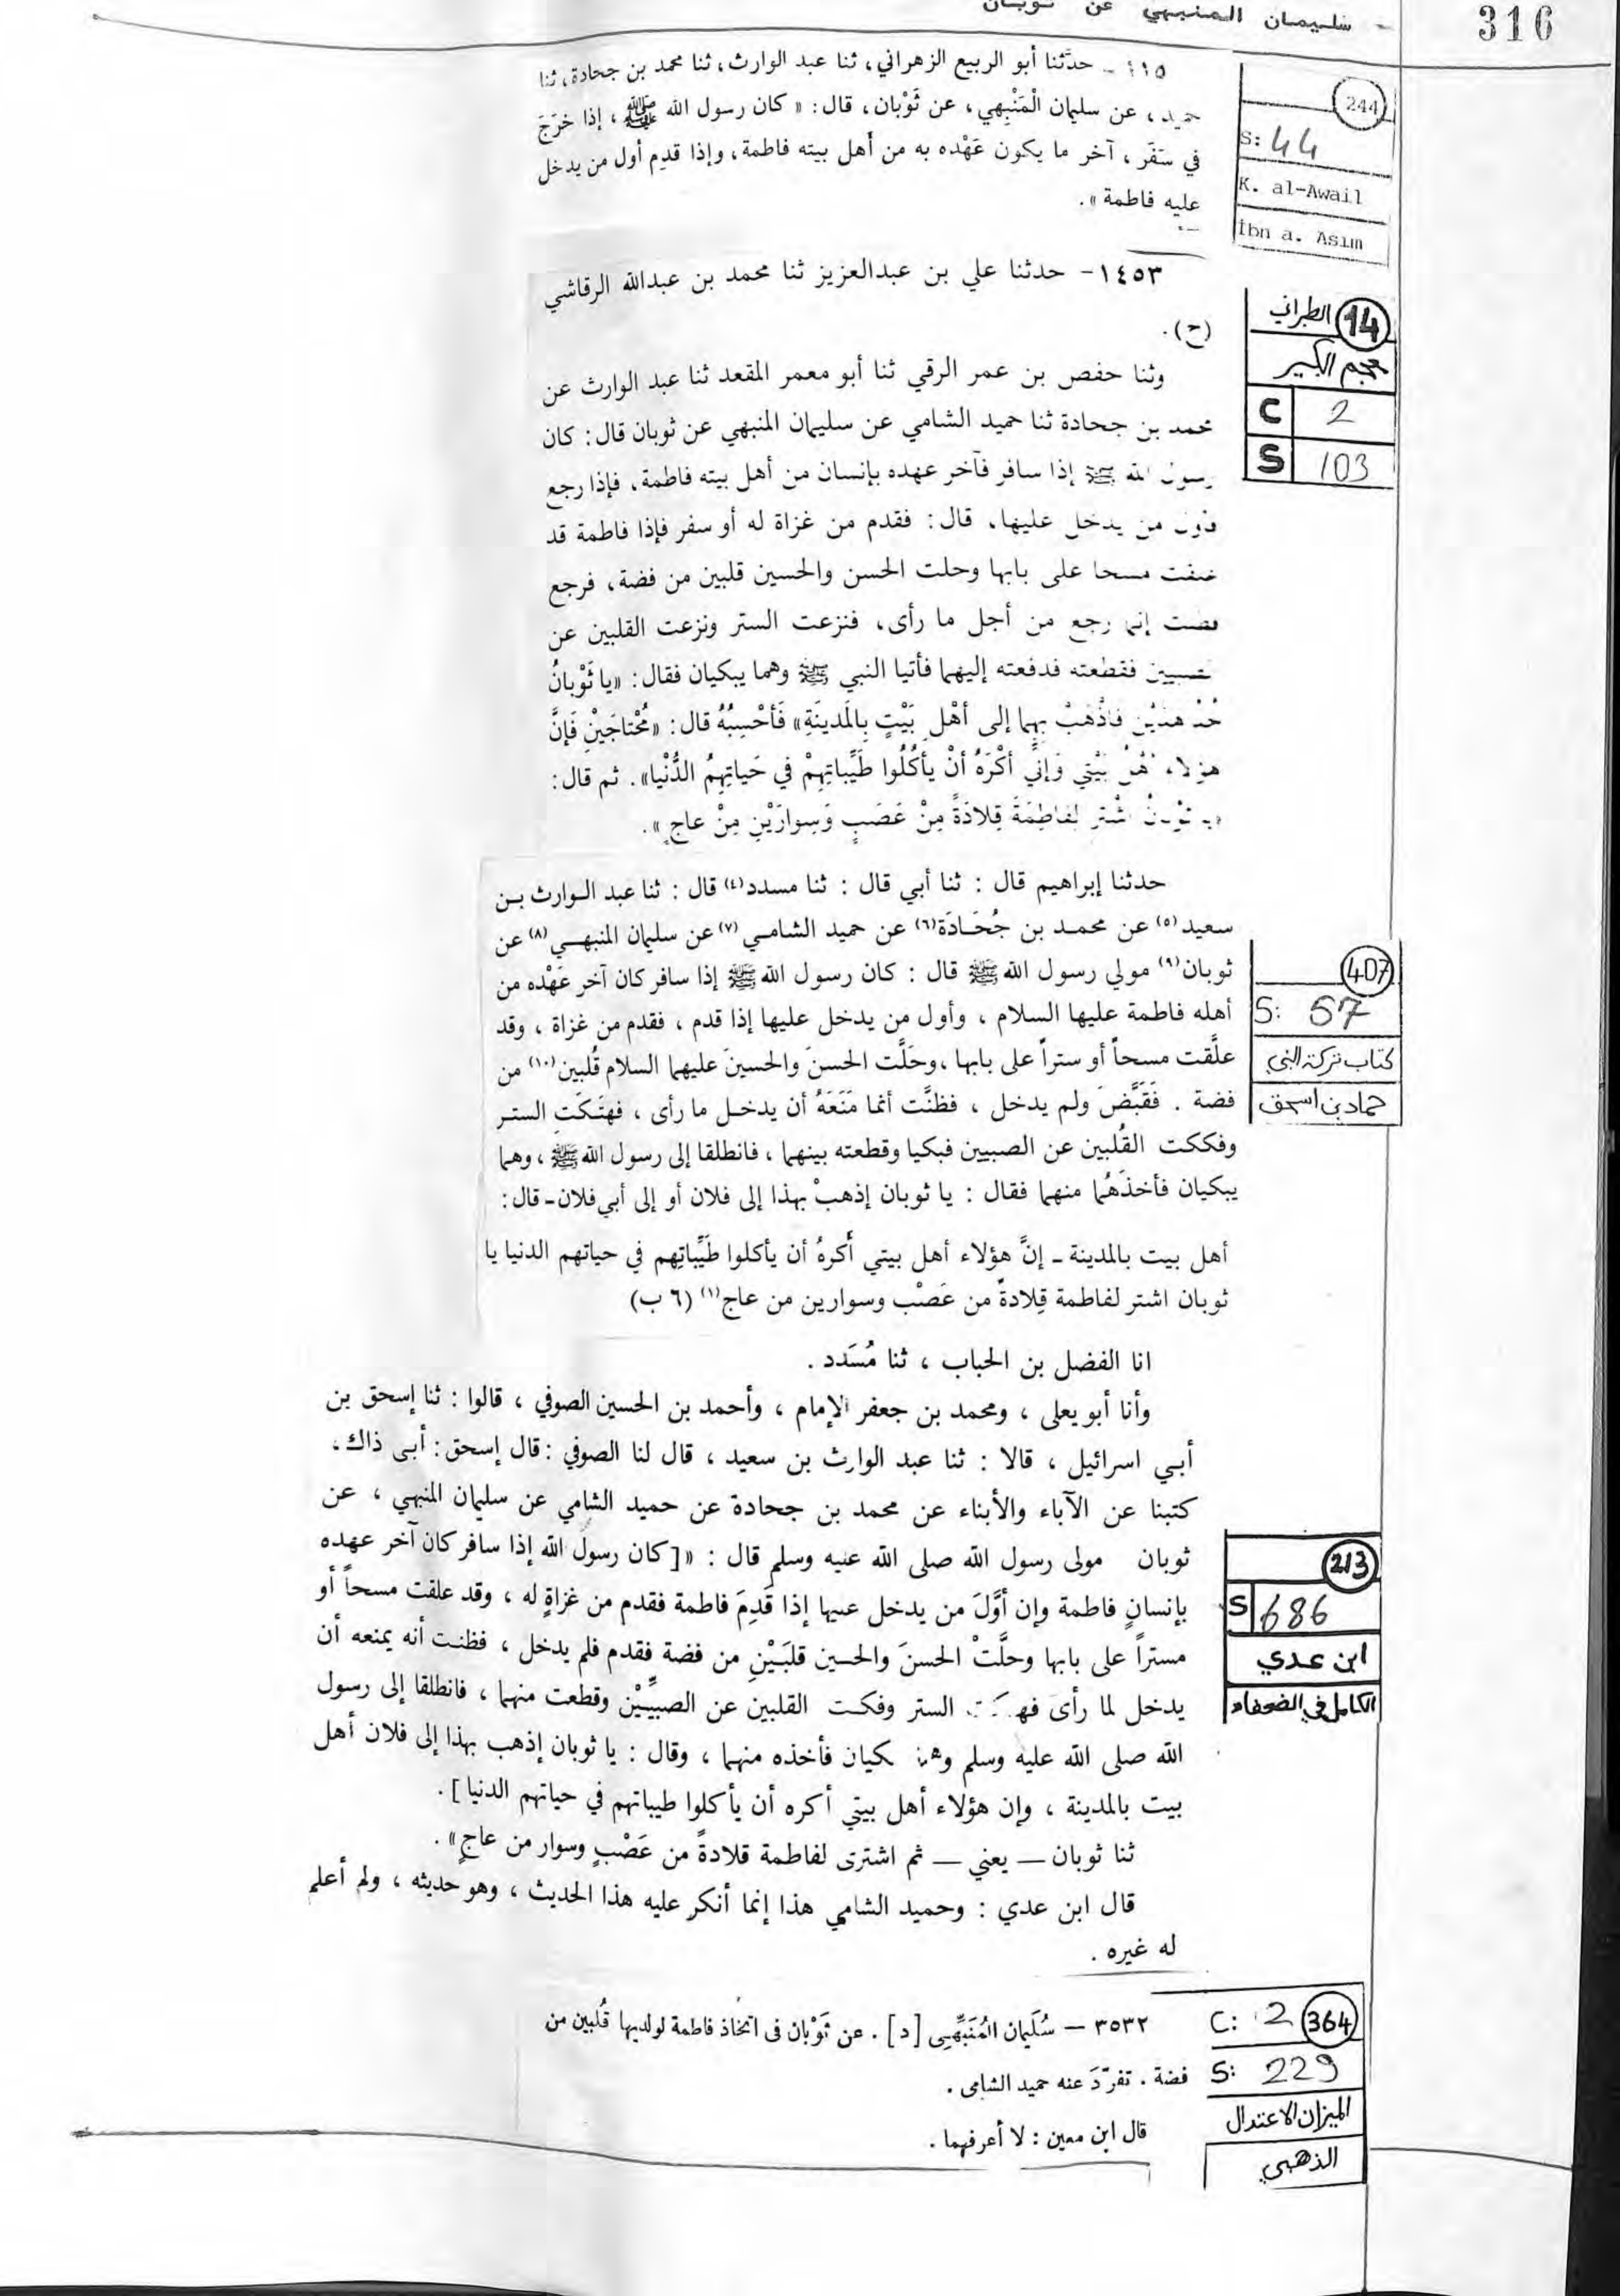 316
- سليمان المنبهي عن ثوبان
١١٥ - حدّثنا أبو الربيع الزهراني، ثنا عبد الوارث، ثنا محمد بن جحادة، ثنا
حميد، عن سليمان الْمَنْبِهي، عن ثَوْبان، قال: «كان رسول الله ﷺ، إذا خرَجَ
في سَفَر، آخر ما يكون عَهْده به من أهل بيته فاطمة، وإذا قدِم أول من يدخل
عليه فاطمة».
244
S: 44
K. al-Awail
İbn a. Asım
١٤٥٣- حدثنا علي بن عبدالعزيز ثنا محمد بن عبدالله الرقاشي
(ح).
وثنا حفص بن عمر الرقي ثنا أبو معمر المقعد ثنا عبد الوارث عن
محمد بن جحادة ثنا حميد الشامي عن سليمان المنبهي عن ثوبان قال: كان
رسول الله ﷺ إذا سافر فآخر عهده بإنسان من أهل بيته فاطمة، فإذا رجع
فأول من يدخل عليها، قال: فقدم من غزاة له أو سفر فإذا فاطمة قد
علقت مسحا على بابها وحلت الحسن والحسين قلبين من فضة، فرجع
فظنت إنما رجع من أجل ما رأى، فنزعت الستر ونزعت القلبين عن
الصبيين فقطعته فدفعته إليهما فأتيا النبي ﷺ وهما يبكيان فقال: «يا ثَوْبانُ
خُذْ هذَيْنِ فاذْهَبْ بِهِما إلى أهْلِ بَيْتٍ بِالمَدينَةِ» فَأحْسِبُهُ قال: «مُحْتاجَيْنِ فَإنَّ
هؤلاء أهْلُ بَيْتي وَإنّي أكْرَهُ أنْ يأكُلُوا طَيِّباتِهِمْ في حَياتِهِمُ الدُّنْيا». ثم قال:
«يا ثوْبانُ اشْترِ لِفاطِمَةَ قِلادَةً مِنْ عَصَبٍ وَسِوارَيْنِ مِنْ عاجٍ».
14 الطبراني
معجم الكبير
C 2
S 103
حدثنا إبراهيم قال : ثنا أبي قال : ثنا مسدد(٤) قال : ثنا عبد الوارث بن
سعيد(٥) عن محمد بن جُحَادَة(٦) عن حميد الشامي(٧) عن سليمان المنبهي(٨) عن
ثوبان(٩) مولي رسول الله ﷺ قال : كان رسول الله ﷺ إذا سافر كان آخر عَهْده من
أهله فاطمة عليها السلام ، وأول من يدخل عليها إذا قدم ، فقدم من غزاة ، وقد
علَّقت مسحاً أو ستراً على بابها ،وحَلَّت الحسنَ والحسينَ عليهما السلام قُلبين(١٠) من
فضة . فَقَبَّضَ ولم يدخل ، فظنَّت أنما مَنَعَهُ أن يدخل ما رأى ، فهتَكَتِ الستر
وفككت القُلبين عن الصبيين فبكيا وقطعته بينهما ، فانطلقا إلى رسول الله ﷺ ، وهما
يبكيان فأخذَهُما منهما فقال : يا ثوبان إذهبْ بهذا إلى فلان أو إلى أبي فلان- قال :
أهل بيت بالمدينة - إنَّ هؤلاء أهل بيتي أكرهُ أن يأكلوا طَيِّباتِهم في حياتهم الدنيا يا
ثوبان اشتر لفاطمة قِلادةً من عَصْب وسوارين من عاج(١) (٦ ب)
407
S: 57
كتاب تركة النبي
حماد بن اسحق
انا الفضل بن الحباب ، ثنا مُسَدد .
وأنا أبو يعلى ، ومحمد بن جعفر الإمام ، وأحمد بن الحسين الصوفي ، قالوا : ثنا إسحق بن
أبي اسرائيل ، قالا : ثنا عبد الوارث بن سعيد ، قال لنا الصوفي : قال إسحق : أبى ذاك ،
كتبنا عن الآباء والأبناء عن محمد بن جحادة عن حميد الشامي عن سليمان المنبهي ، عن
ثوبان مولى رسول الله صلى الله عليه وسلم قال : «[كان رسول الله إذا سافر كان آخر عهده
بإنسانٍ فاطمة وإن أوَّلَ من يدخل عليها إذا قَدِمَ فاطمة فقدم من غزاةٍ له ، وقد علقت مسحاً أو
مستراً على بابها وحلَّتْ الحسنَ والحسين قلبَيْنِ من فضة فقدم فلم يدخل ، فظنت أنه يمنعه أن
يدخل لما رأى فهتكت الستر وفكت القلبين عن الصبيَّيْن وقطعت منهما ، فانطلقا إلى رسول
الله صلى الله عليه وسلم وهما يبكيان فأخذه منهما ، وقال : يا ثوبان إذهب بهذا إلى فلان أهل
بيت بالمدينة ، وإن هؤلاء أهل بيتي أكره أن يأكلوا طيباتهم في حياتهم الدنيا] .
ثنا ثوبان — يعني — ثم اشترى لفاطمة قلادةً من عَصْبٍ وسوار من عاجٍ» .
قال ابن عدي : وحميد الشامي هذا إنما أنكر عليه هذا الحديث ، وهو حديثه ، ولم أعلم
له غيره .
213
S 686
ابن عدي
الكامل في الضعفاء
٣٥٣٢ — سُلَيمان المُنَبِّهِى [د] . عن ثَوْبان فى اتخاذ فاطمة لولديها قُلبين من
فضة . تفرّدَ عنه حميد الشامى .
قال ابن معين : لا أعرفهما .
364 C: 2
S: 229
الميزان الاعتدال
الذهبي